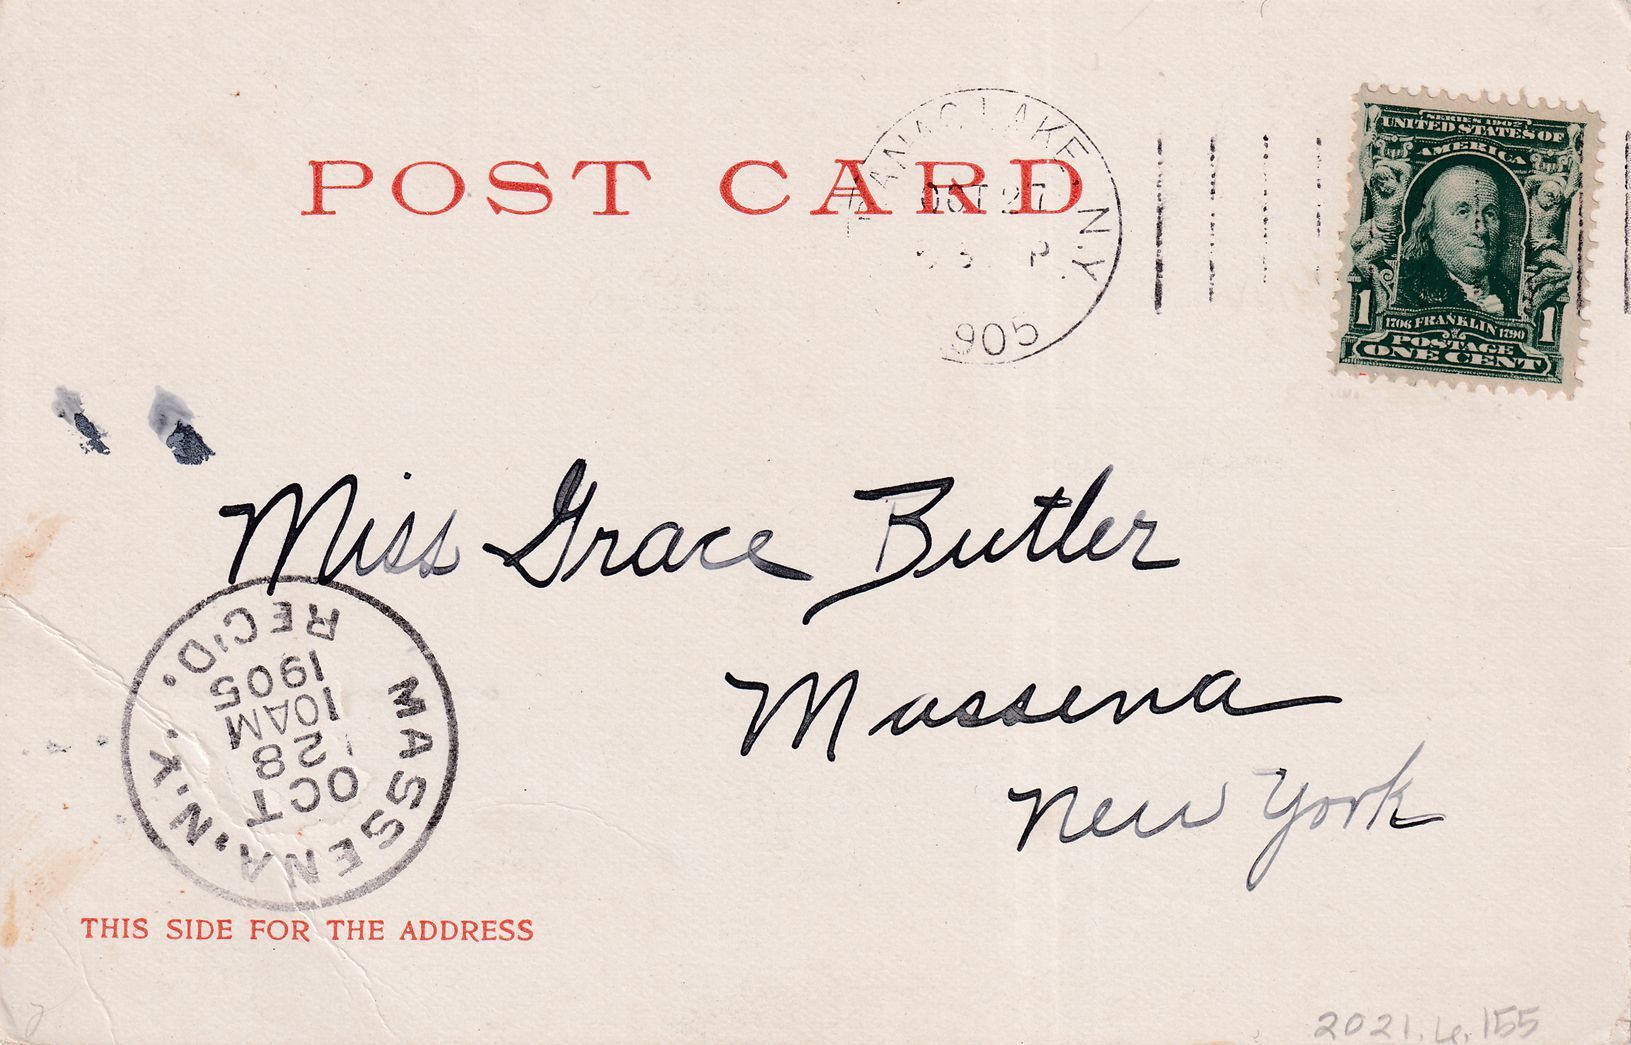 POST CARD
ANAC LAKE N.Y.
OCT 27
905
SERIES 1902
UNITED STATES OF
AMERICA
1 1
1706 FRANKLIN 1790
POSTAGE
ONE CENT
Miss Grace Butler
Massena
New York
MASSENA, N.Y.
OCT
28
10AM
1905
REC'D.
THIS SIDE FOR THE ADDRESS
2021.4.155